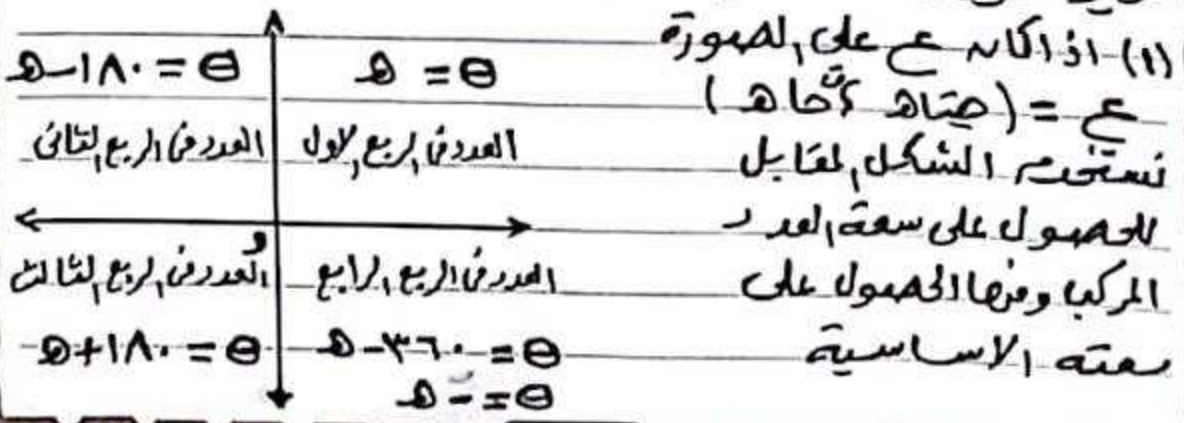 (١)- اذا كان ع على الصورة
ع = (جتاه ± ت جاه)
نستخدم الشكل المقابل
للحصول على سعة العدد
المركب ومنها الحصول على
سعته الاساسية
θ = ١٨٠ - ه
θ = ه
العدد فى الربع الثانى
العدد فى الربع الاول
و
العدد فى الربع الثالث
العدد فى الربع الرابع
θ = ١٨٠ + ه
θ = ٣٦٠ - ه
θ = - ه